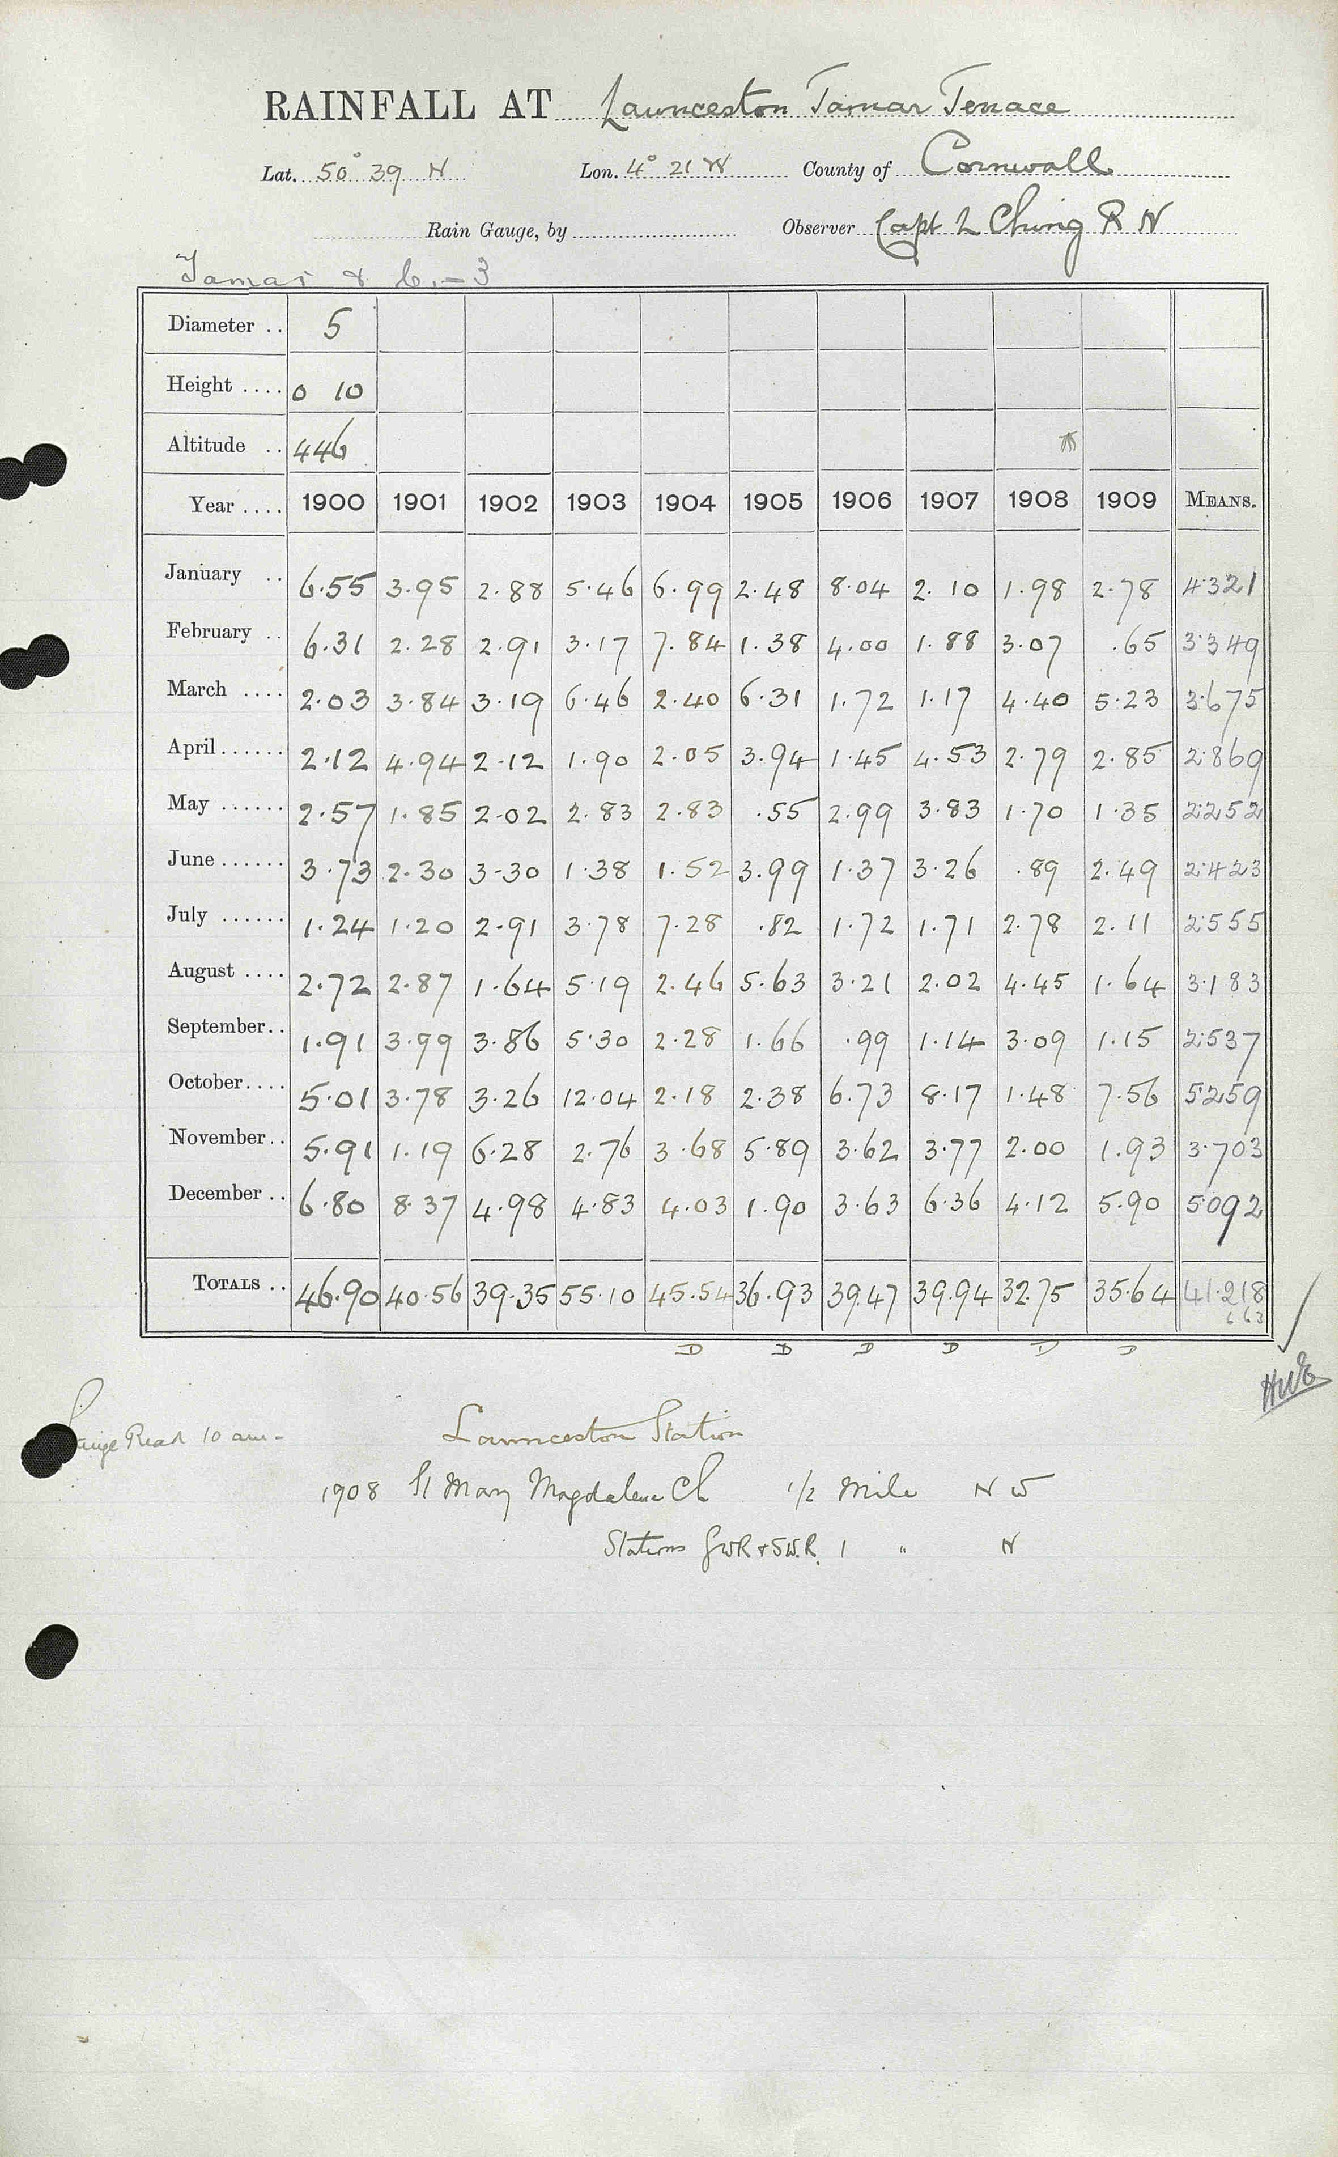 RAINFALL AT Launceston Tamar Terrace
Lat. 50° 39 N Lon. 4° 21 W County of Cornwall
Rain Gauge, by Observer Capt L Ching R N
Tamar & 3
Diameter .. 5
Height .... 0 10
Altitude .. 446
Year .... 1900 1901 1902 1903 1904 1905 1906 1907 1908 1909 MEANS.
January .. 6.55 3.95 2.88 5.46 6.99 2.48 8.04 2.10 1.98 2.78 4.321
February .. 6.31 2.28 2.91 3.17 7.84 1.38 4.00 1.88 3.07 .65 3.349
March .... 2.03 3.84 3.19 6.46 2.40 6.31 1.72 1.17 4.40 5.23 3.675
April ...... 2.12 4.94 2.12 1.90 2.05 3.94 1.45 4.53 2.79 2.85 2.869
May ...... 2.57 1.85 2.02 2.83 2.83 .55 2.99 3.83 1.70 1.35 2.252
June ...... 3.73 2.30 3.30 1.38 1.52 3.99 1.37 3.26 .89 2.49 2.423
July ...... 1.24 1.20 2.91 3.78 7.28 .82 1.72 1.71 2.78 2.11 2.555
August .... 2.72 2.87 1.64 5.19 2.46 5.63 3.21 2.02 4.45 1.64 3.183
September.. 1.91 3.99 3.86 5.30 2.28 1.66 .99 1.14 3.09 1.15 2.537
October.... 5.01 3.78 3.26 12.04 2.18 2.38 6.73 8.17 1.48 7.56 5.259
November.. 5.91 1.19 6.28 2.76 3.68 5.89 3.62 3.77 2.00 1.93 3.703
December .. 6.80 8.37 4.98 4.83 4.03 1.90 3.63 6.36 4.12 5.90 5.092
TOTALS .. 46.90 40.56 39.35 55.10 45.54 36.93 39.47 39.94 32.75 35.64 41.218
D D D D D D
Read 10 am -
Launceston Station
1908 St Mary Magdalene Ch 1/2 mile N W
Stations GWR & SWR. 1 " N